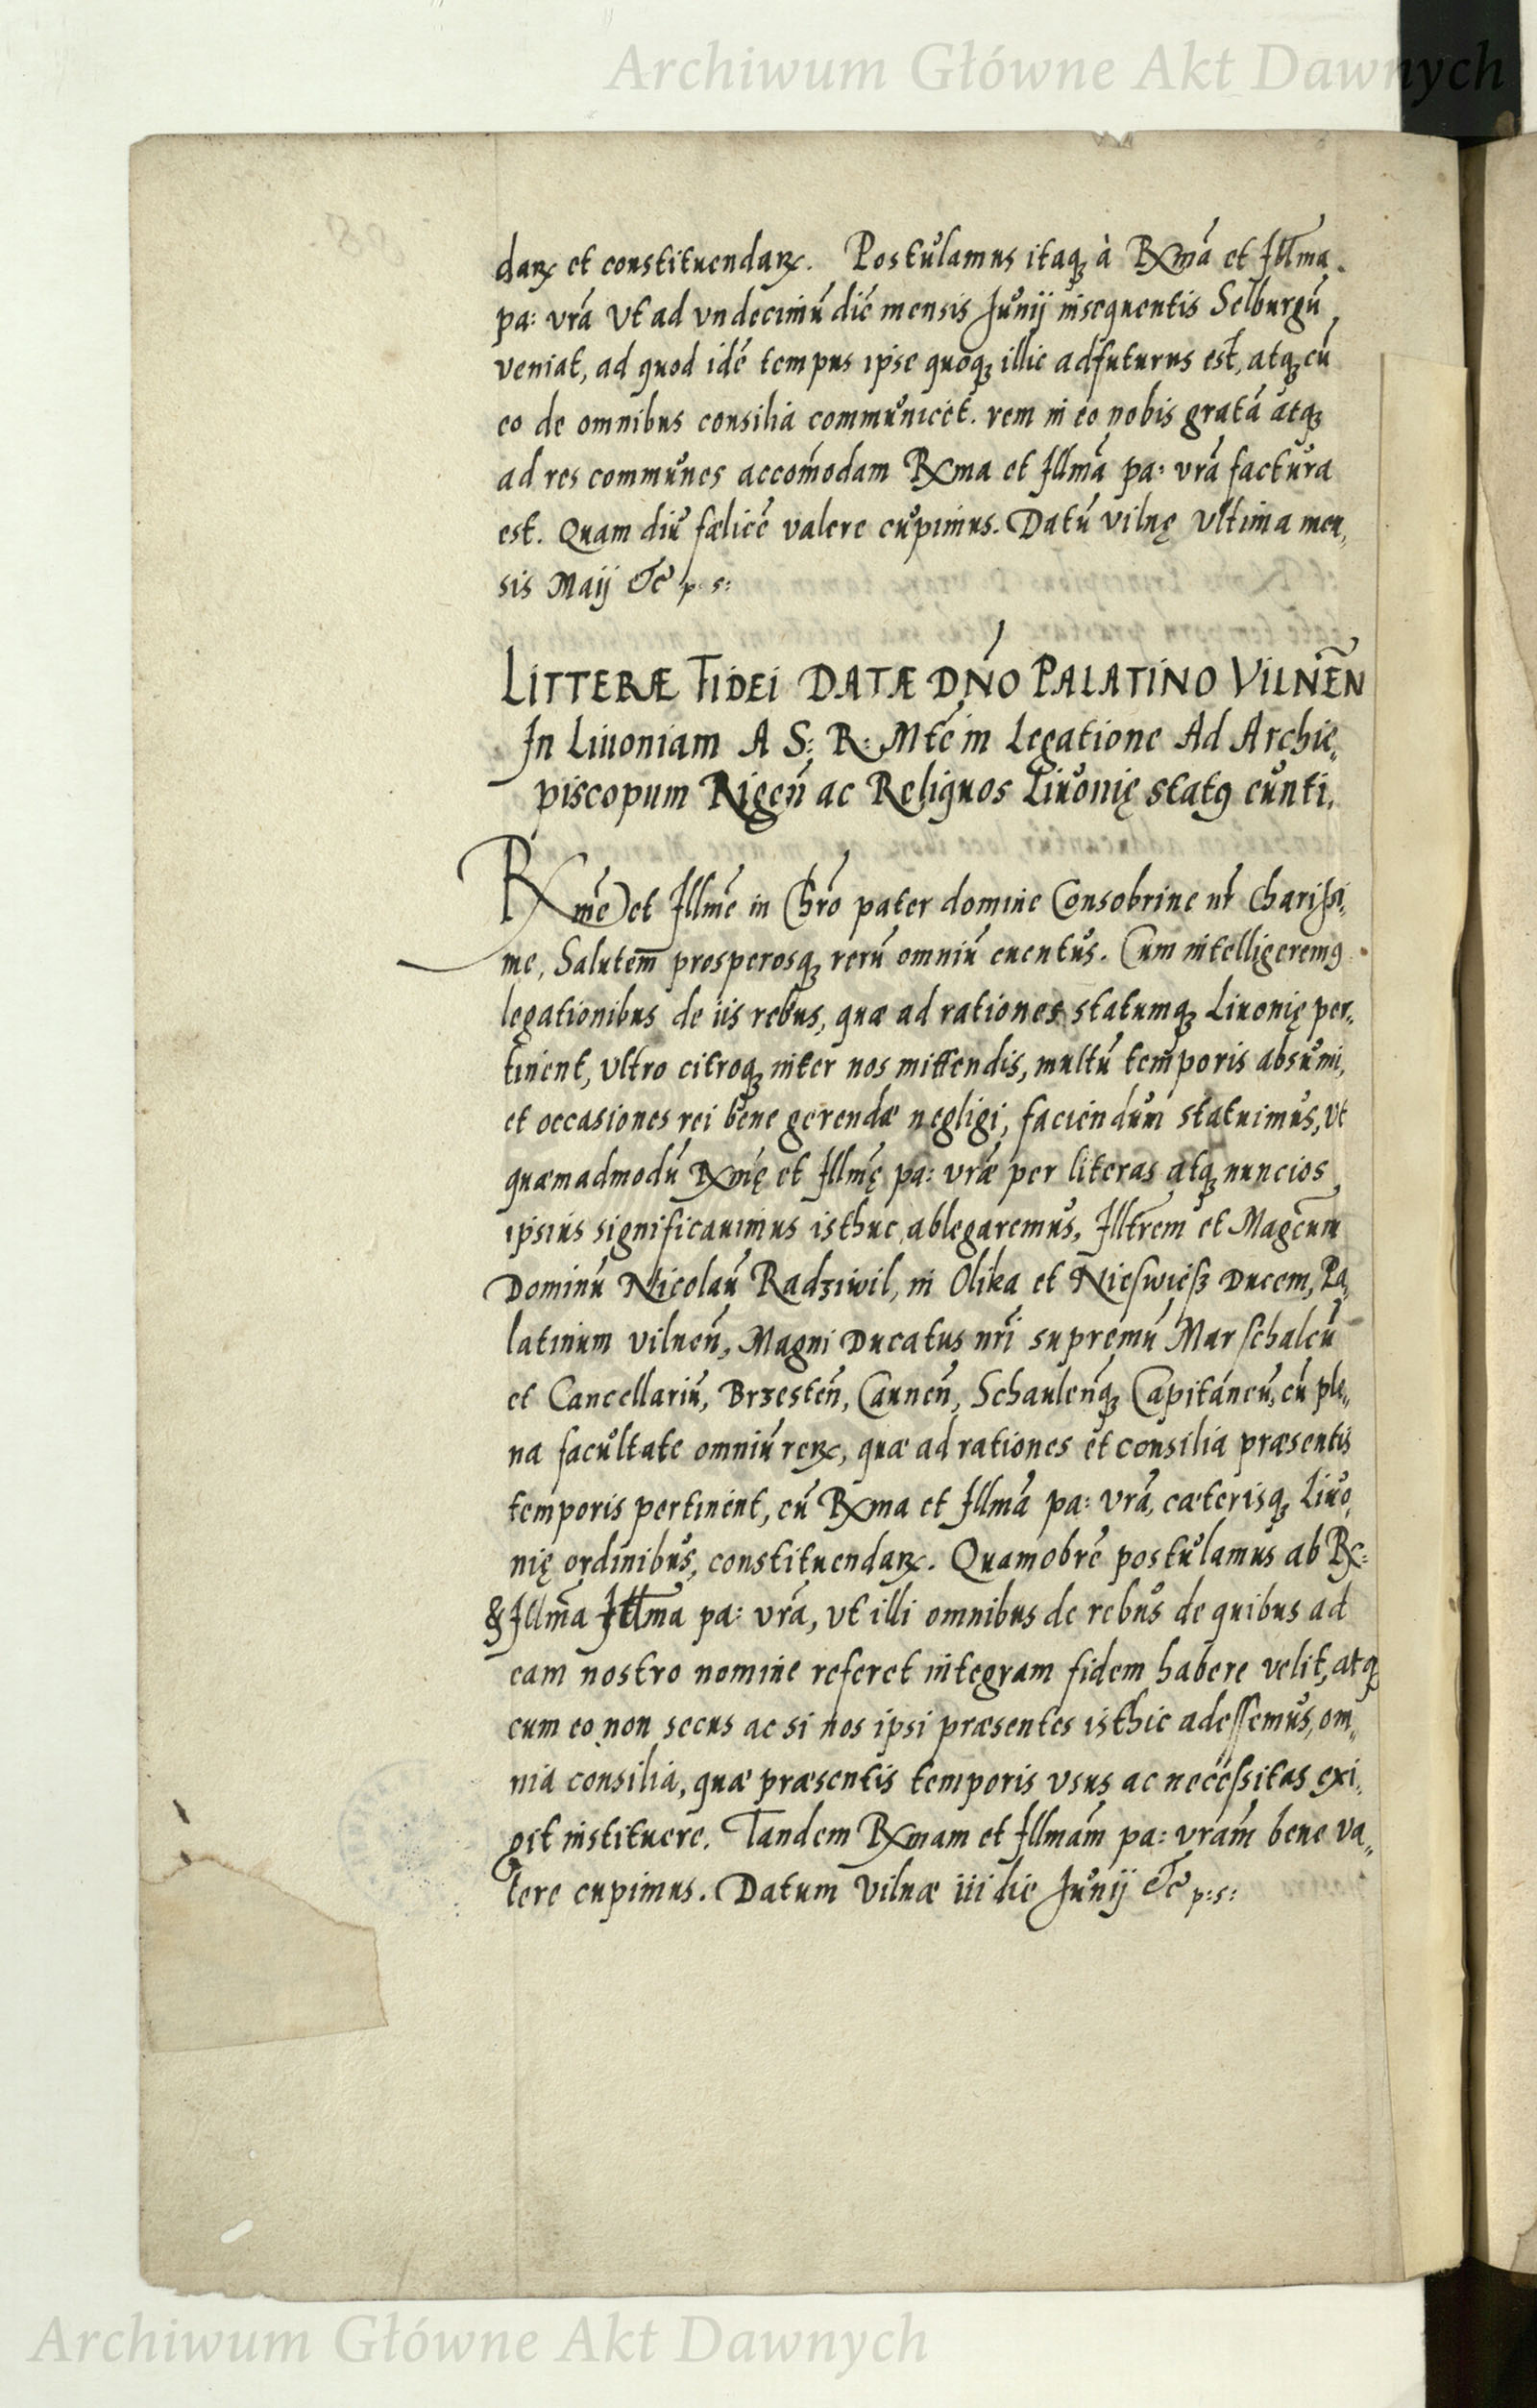 Archiwum Główne Akt Dawnych
daꝝ et constituendaꝝ. Postulamus itaqꝫ à Rxmā et Illma
pa: vrā Vt ad vndecimū diē mensis Junij insequentis Selburgū
veniat, ad quod idē tempus ipse quoqꝫ illic adfuturus est, atqꝫ cū
eo de omnibus consilia communicēt. rem in eo nobis gratā atqꝫ
ad res communes accom̄odam Rxma et Illmā pa: vrā factura
est. Quam diu fælicē valere cupimus. Datū vilnę Vltima men„
sis Maij &c̄ p: s:
LITTERÆ FIDEI DATÆ DN̄O PALATINO VILNEN̄
In Liuoniam A S: R: Mtē in Legatione Ad Archie„
piscopum Rigen̄ ac Reliquos Liuonię statꝯ eunti.
Rxmē et Illmē in Chrō pater domine Consobrine nr̄ Charissi„
me, Salutem̄ prosperosqꝫ rerū omniū euentus. Cum intelligeremꝯ
legationibus de iis rebus, quæ ad rationes statumqꝫ Liuonię per„
tinent, Vltro citroqꝫ inter nos mittendis, multū temporis absumi,
et occasiones rei bene gerendæ negligi, faciendum statuimus, Vt
quæmadmodū Rxmę et Illmę pa: vræ per literas atqꝫ nuncios
ipsius significauimus isthuc ablegaremus, Illtrēm et Magcūm
Dominū Nicolaū Radziwil, in Olika et Nieswiesz Ducem, Pa„
latinum vilnen̄, Magni Ducatus nrī supremū Marschalcū
et Cancellariū, Brzesten̄, Caunen̄, Schaulen̄qꝫ Capitaneū, cū ple„
na facultate omniū reꝝ, quæ ad rationes et consilia præsentis
temporis pertinent, cū Rxma et Illmā pa: vrā, cæterisqꝫ Liuo„
nię ordinibus, constituendaꝝ. Quamobrē postulamus ab Rx:
& Illmā Illma pa: vrā, vt illi omnibus de rebus de quibus ad
eam nostro nomine referet integram fidem habere velit, atqꝫ
cum eo non secus ac si nos ipsi præsentes isthic adessemus, om„
nia consilia, quæ præsentis temporis vsus ac necessitas exi„
git instituere. Tandem Rxmam et Illmam pa: vram bene va„
lere cupimus. Datum Vilnæ iii die Junij &c̄ p: s:
Archiwum Główne Akt Dawnych